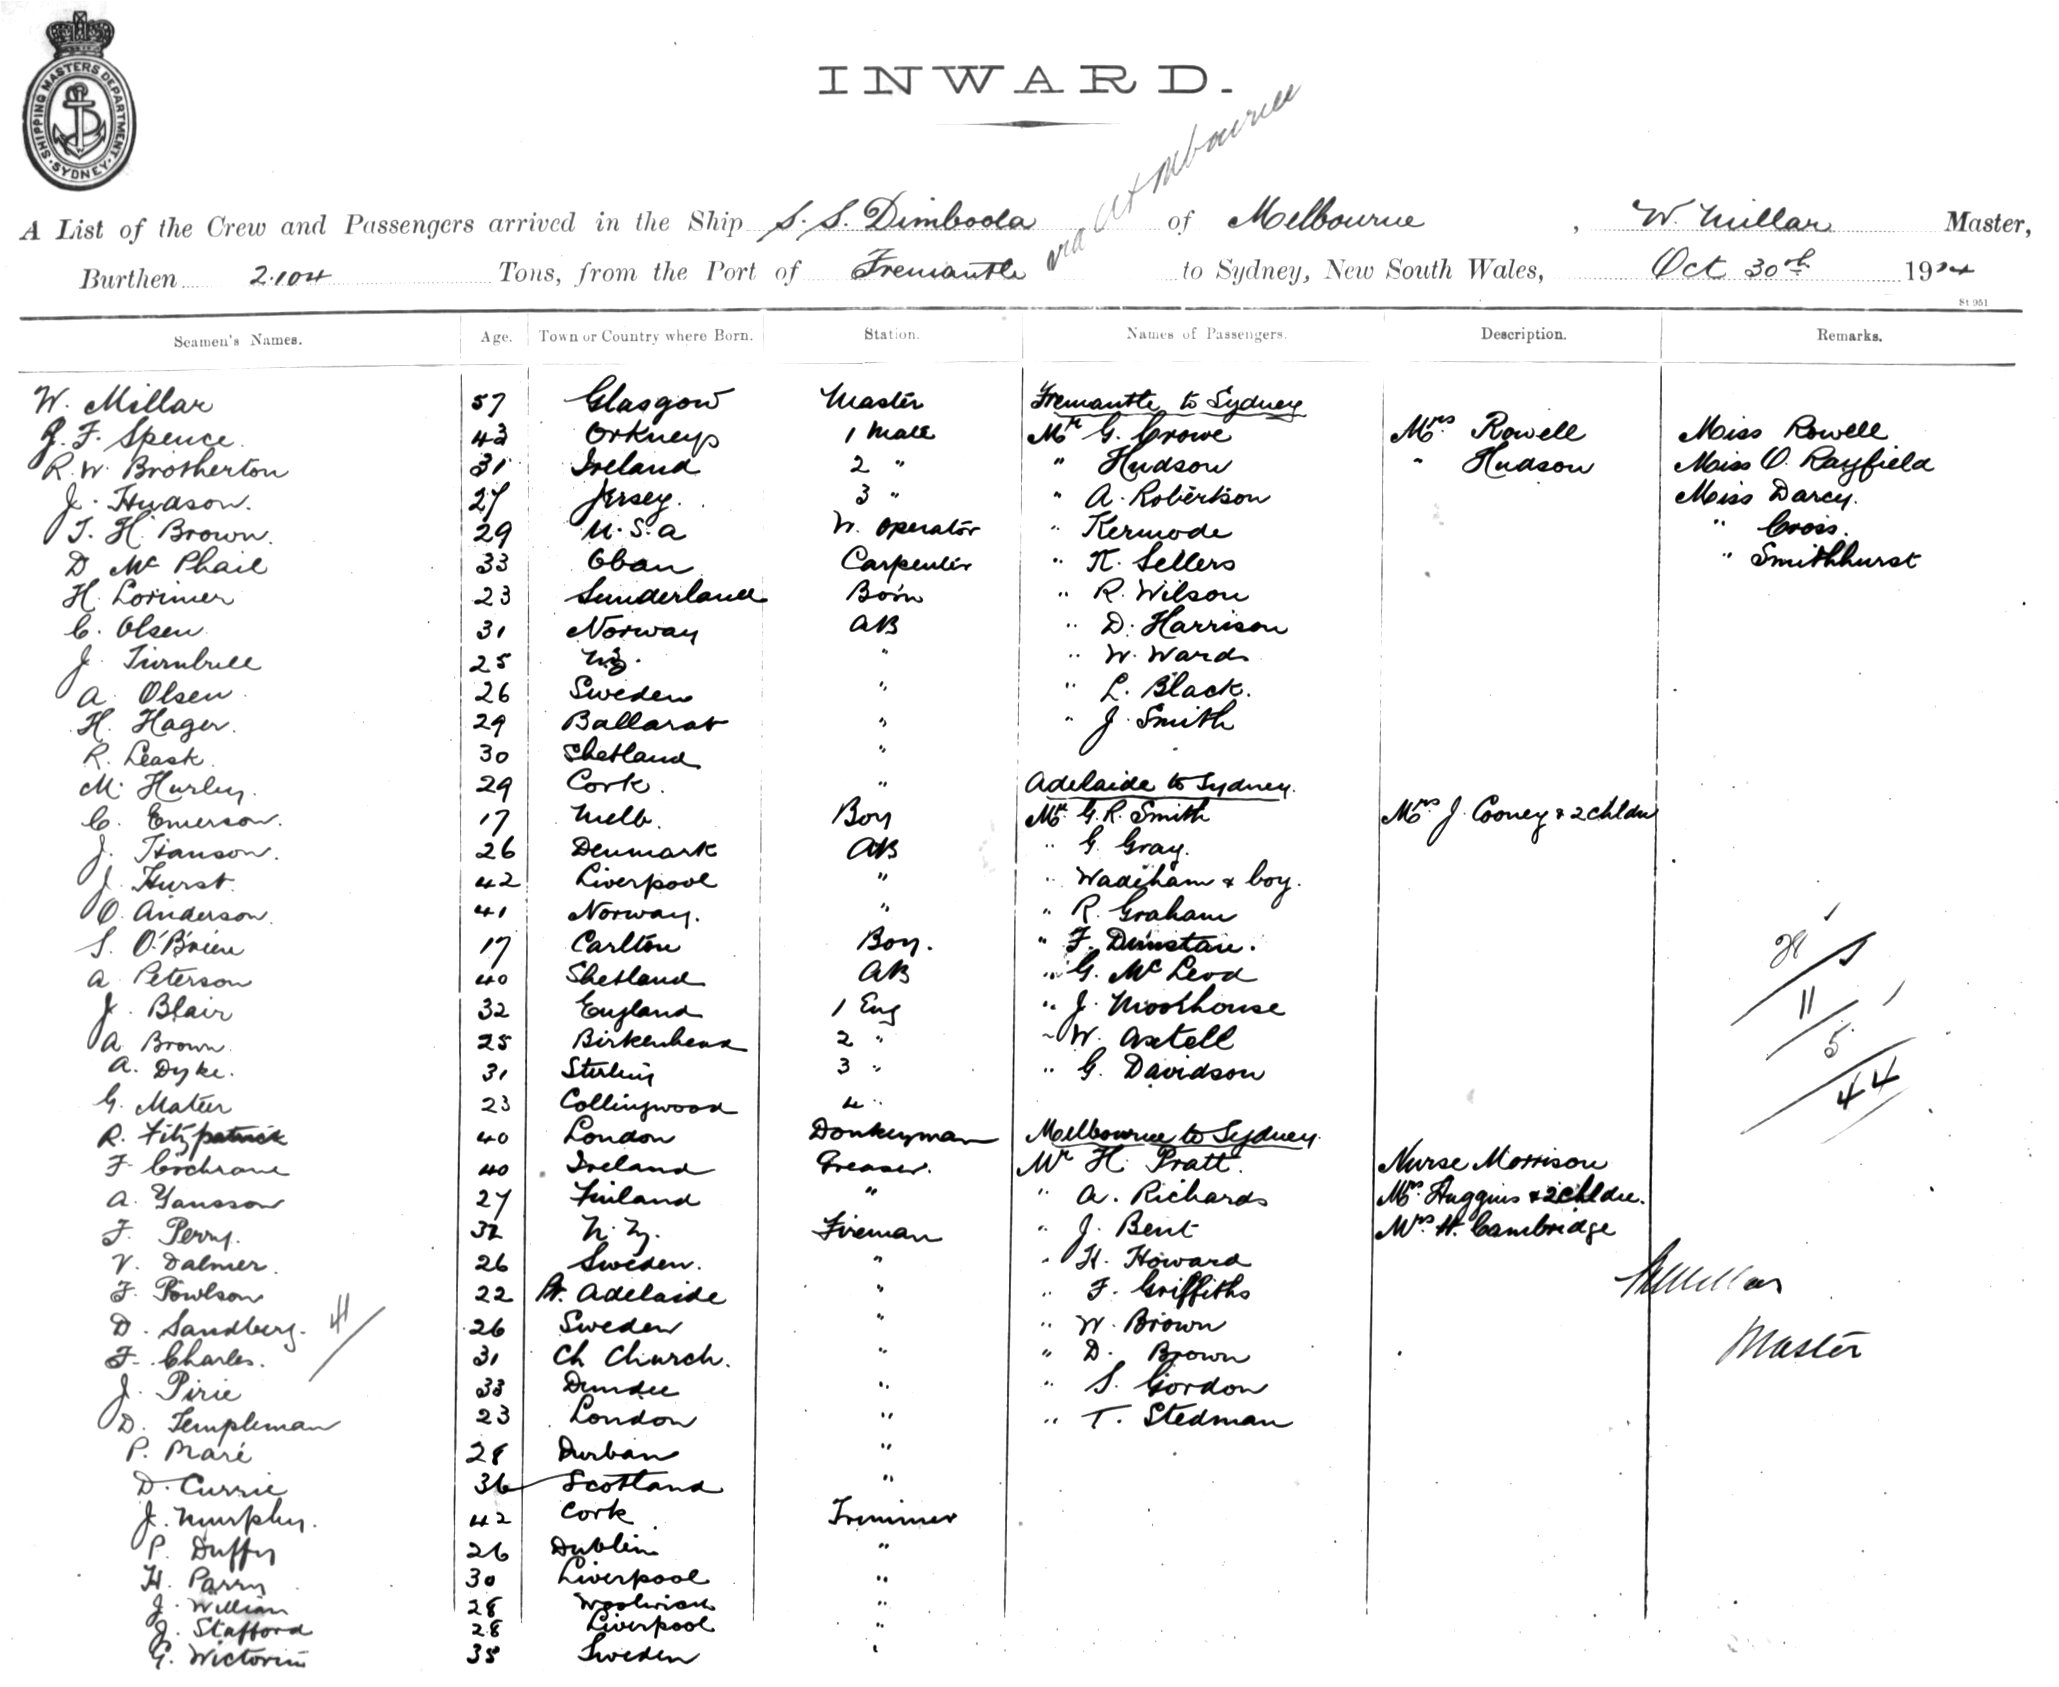 SHIPPING MASTERS DEPARTMENT · SYDNEY ·
INWARD.
A List of the Crew and Passengers arrived in the Ship S.S. Dimboola of Melbourne, W. Millar Master,
via Melbourne
Burthen 2.104 Tons, from the Port of Fremantle to Sydney, New South Wales, Oct 30th 1924
St 951
Seamen's Names. Age. Town or Country where Born. Station. Names of Passengers. Description. Remarks.
W. Millar 57 Glasgow Master Fremantle to Sydney
J. F. Spence 43 Orkneys 1 Mate Mr G. Crowe Mrs Rowell Miss Rowell
R. W. Brotherton 31 Ireland 2 " " Hudson " Hudson Miss O. Rayfield
J. Hudson. 27 Jersey. 3 " " A. Robertson Miss Darcy.
T. H. Brown. 29 U.S.A W. Operator " Kermode " Cross.
D Mc Phail 33 Oban Carpenter " K. Sellers " Smithhurst
H. Lorimer 23 Sunderland Bo'n " R. Wilson
C. Olsen 31 Norway AB " D. Harrison
J. Turnbull 25 NZ. " " W. Wards
A. Olsen 26 Sweden " " L. Black.
H. Hager. 29 Ballarat " " J. Smith
R. Leask. 30 Shetland "
M. Hurley. 29 Cork. " Adelaide to Sydney.
C. Emerson. 17 Melb. Boy Mr. G. R. Smith Mrs J. Cooney & 2 chldn
J. Hanson. 26 Denmark AB " G. Gray.
J. Hurst. 42 Liverpool " " Wadeham & boy.
O. Anderson. 41 Norway. " " R. Graham
S. O'Brien 17 Carlton Boy. " F. Dunstan.
A Peterson 40 Shetland AB " G. Mc Leod
J. Blair 32 England 1 Eng " J. Moorhouse
A Brown. 25 Birkenhead 2 " " W. Axtell
A. Dyke. 31 Sterling 3 " " G. Davidson
G. Mateer 23 Collingwood 4 "
R. Fitzpatrick 40 London Donkeyman Melbourne to Sydney.
F. Cochrane 40 Ireland Greaser. Mr H. Pratt. Nurse Morrison
A. Yansson 27 Finland " " A. Richards Mrs. Huggins & 2 chldn.
F. Perry. 32 N.Z. Fireman " J. Bent Mrs H. Cambridge
V. Dalmer. 26 Sweden. " " H. Howard
F. Powlson 22 Pt. Adelaide " " F. Griffiths
D. Sandberg. 26 Sweden " " W. Brown
F. Charles. 31 Ch Church. " " D. Brown
J. Pirie 33 Dundee " " S. Gordon
D. Templeman 23 London " " T. Stedman
P. Maré 28 Durban "
D. Currie 36 Scotland "
J. Murphy. 42 Cork Trimmer
P. Duffy 26 Dublin "
H. Parry 30 Liverpool "
J. William 28 Woolwich "
J. Stafford 28 Liverpool "
G. Wictorin 35 Sweden "
11
5
44
41
W Millar
Master